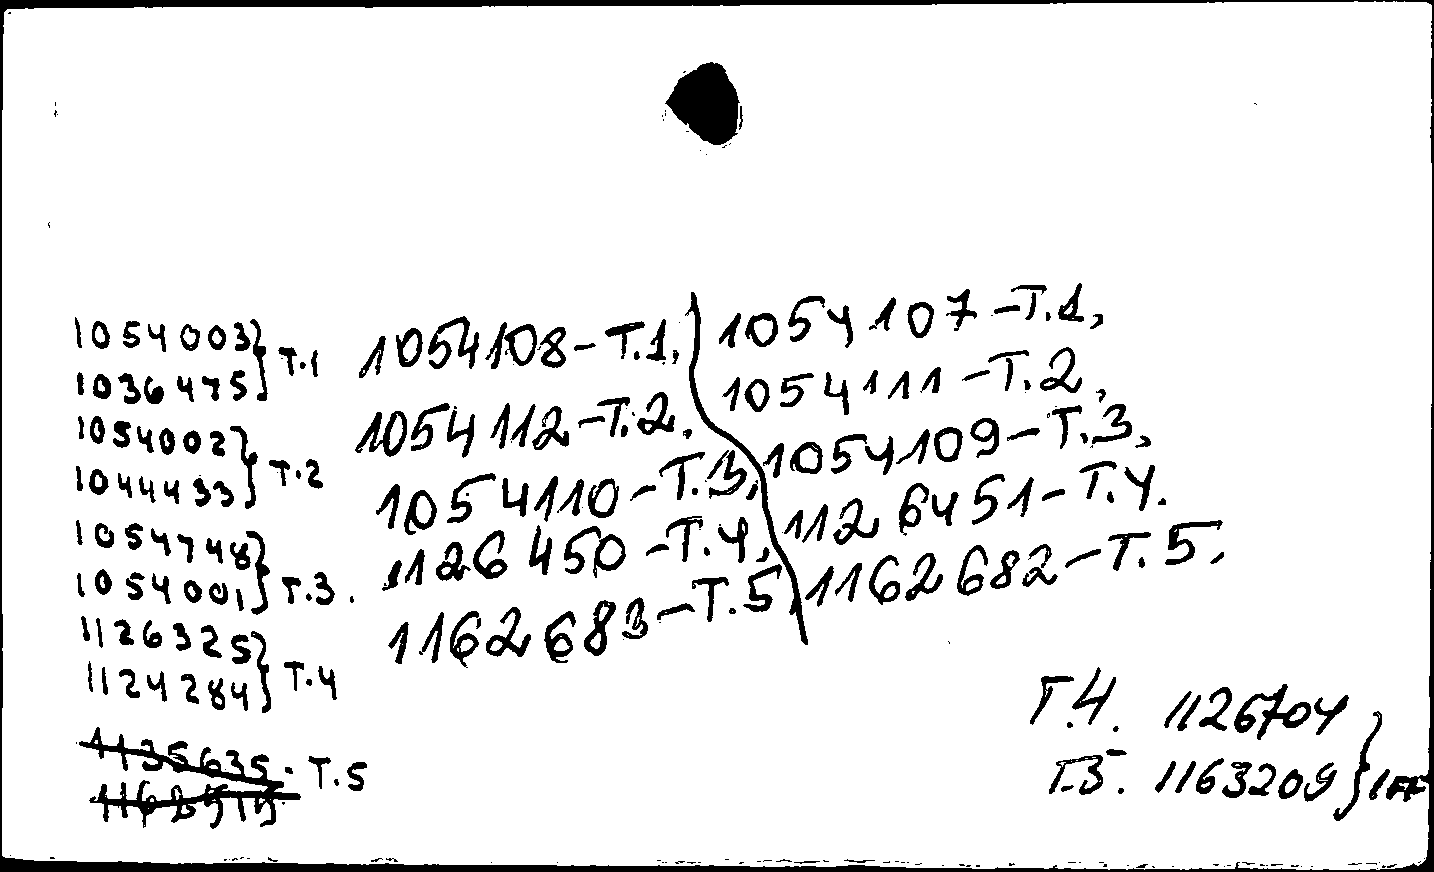 1054003 } Т.1
1036475
1054002 } Т.2
1044433
1054748 } Т.3.
1054001
1126325 } Т.4
1124284
1135635. Т.5
1054108-Т.1,
1054112-Т.2.
1054110-Т.3,
1126450-Т.4,
1162683-Т.5,
1054107-Т.1,
1054111-Т.2,
1054109-Т.3,
1126451-Т.4.
1162682-Т.5,
Т.4. 1126704
Т.5. 1163209 }